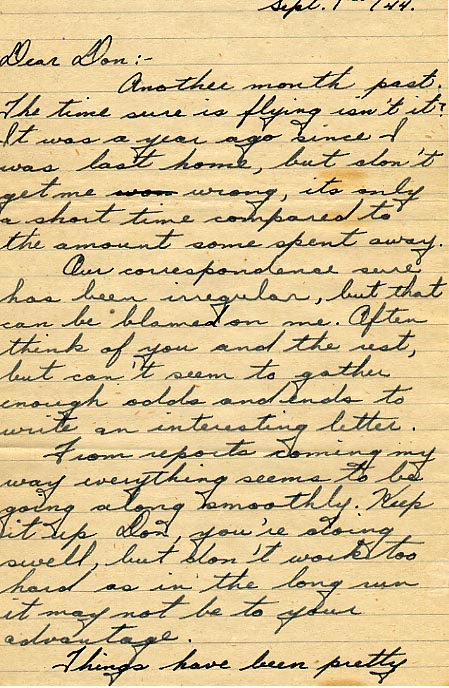 Sept. 1st /44.
Dear Don:-
Another month past.
The time sure is flying isn't it?
It was a year ago since I
was last home, but don't
get me won wrong, its only
a short time compared to
the amount some spent away.
Our correspondence sure
has been irregular, but that
can be blamed on me. Often
think of you and the rest,
but can't seem to gather
enough odds and ends to
write an interesting letter.
From reports coming my
way everything seems to be
going along smoothly. Keep
it up Don, you're doing
swell, but don't work too
hard as in the long run
it may not be to your
advantage.
Things have been pretty